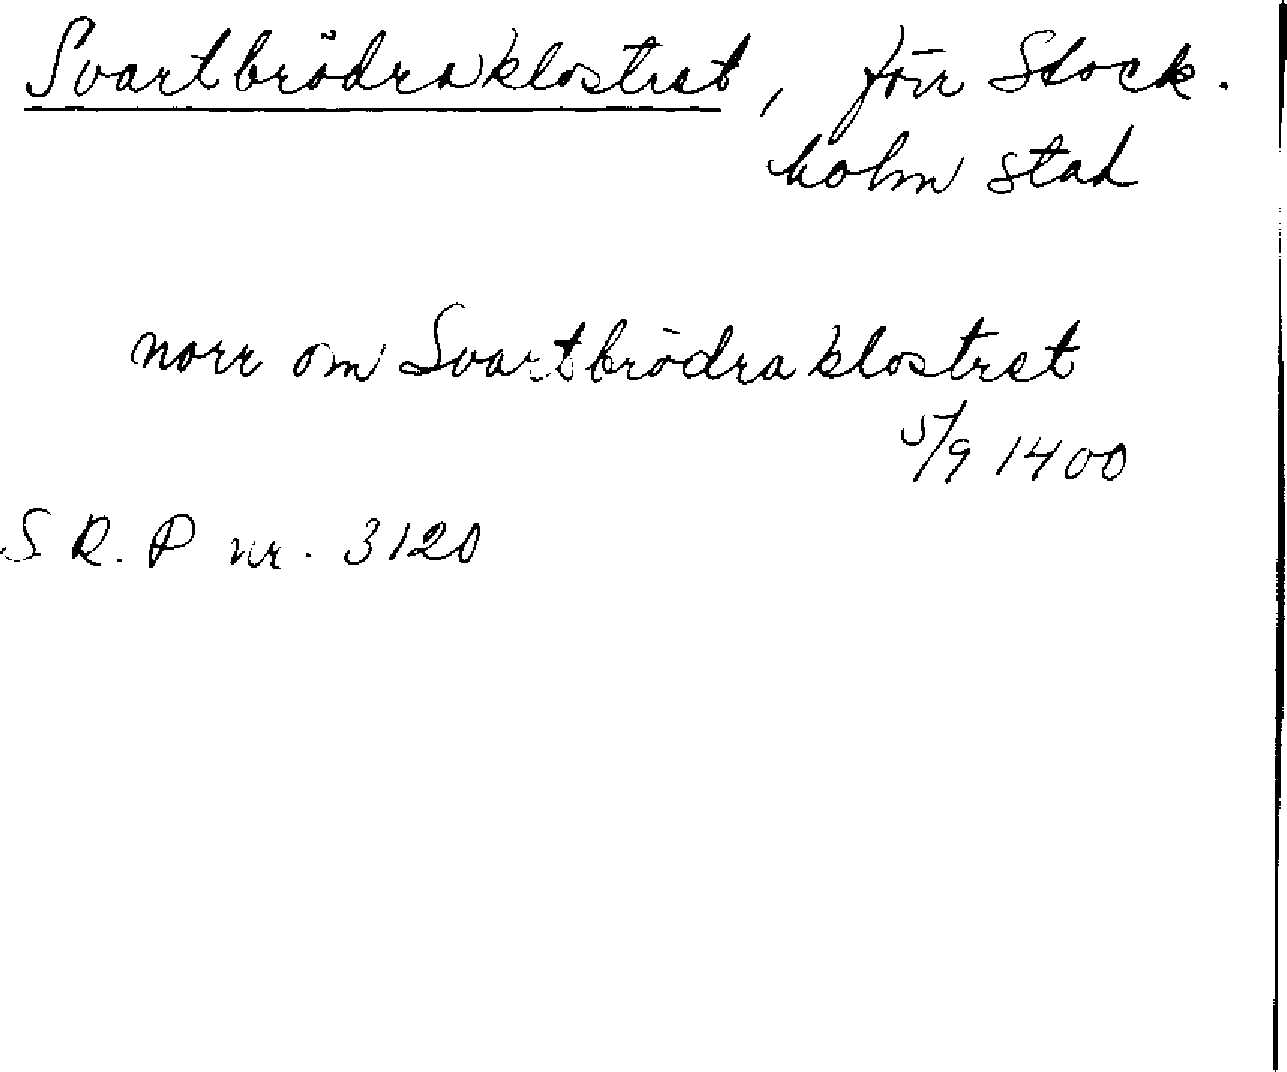 Svartbrödraklostret, förr Stock-
holm stad
norr om Svartbrödraklostret
5/9 1400
S R. P nr. 3120